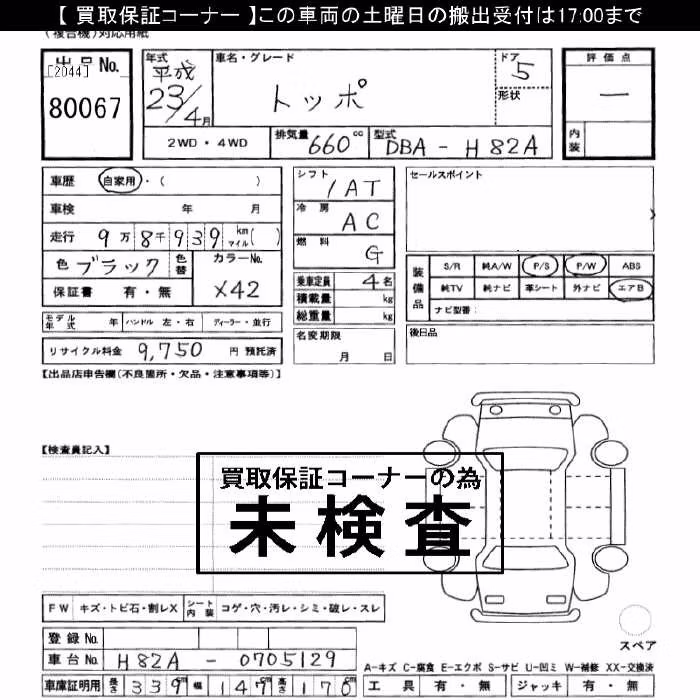 【 買取保証コーナー 】この車両の土曜日の搬出受付は17:00まで
(複合機)対応用紙
出品No.
[2044]
80067
年式
平成
23/4月
車名・グレード
トッポ
ドア
5
形状
評価点
―
内装
2WD・4WD
排気量 660cc
型式 DBA-H82A
車歴 自家用・( )
車検 年 月
走行 9万8千939 km マイル( )
色 ブラック 色替
カラーNo.
X42
保証書 有・無
シフト
/AT
冷房
AC
燃料
G
乗車定員 4名
積載量 kg
総重量 kg
セールスポイント
装備品
S/R 純A/W P/S P/W ABS
純TV 純ナビ 革シート 外ナビ エアB
ナビ型番:
モデル年式 年 ハンドル 左・右 ディーラー・並行
リサイクル料金 9,750 円 預託済
名変期限
月 日
後日品
【出品店申告欄(不良箇所・欠品・注意事項等)】
【検査員記入】
買取保証コーナーの為
未検査
FW キズ・トビ石・割レX シート内装 コゲ・穴・汚レ・シミ・破レ・スレ
登録No.
車台No. H82A - 0705129
車庫証明用 長さ 339cm 幅 147cm 高さ 170cm
スペア
A-キズ C-腐食 E-エクボ S-サビ U-凹ミ W-補修 XX-交換済
工具 有・無 ジャッキ 有・無